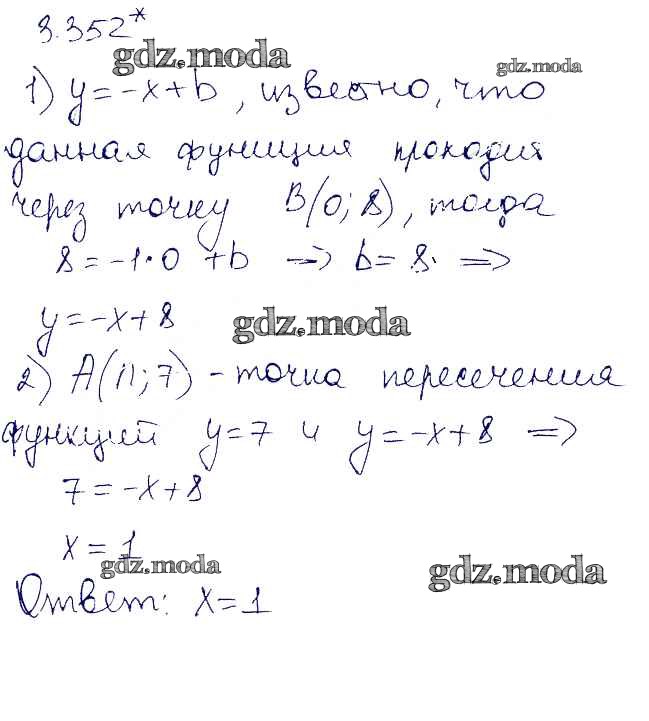 3.352*
gdz.moda
gdz.moda
1) y=-x+b, известно, что
данная функция проходит
через точку B(0; 8), тогда
8 = -1·0 +b → b = 8. ⇒
y=-x+8
gdz.moda
2) A(11; 7) - точка пересечения
функций y=7 и y=-x+8 ⇒
7 = -x+8
x = 1
gdz.moda
gdz.moda
Ответ: x=1